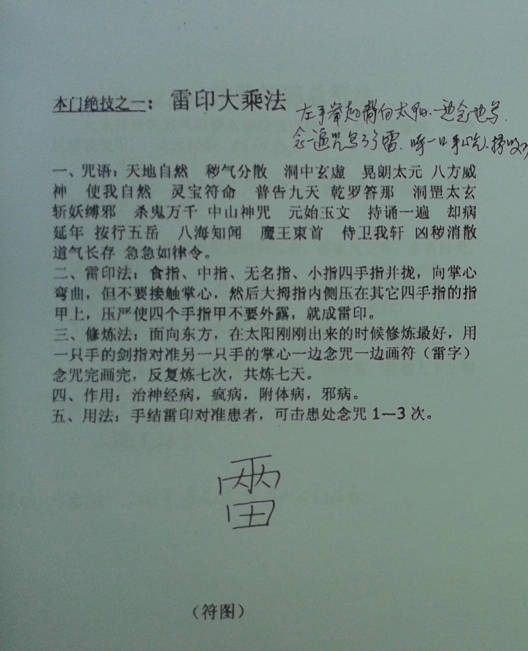 本门绝技之一：雷印大乘法
左手举起背向太阳.一边念一边写
念一遍咒写个雷.呼一口
一、咒语：天地自然　秽气分散　洞中玄虚　晃朗太元　八方威
神　使我自然　灵宝符命　普告九天　乾罗答那　洞罡太玄
斩妖缚邪　杀鬼万千　中山神咒　元始玉文　持诵一遍　却病
延年　按行五岳　八海知闻　魔王束首　侍卫我轩　凶秽消散
道气长存　急急如律令。
二、雷印法：食指、中指、无名指、小指四手指并拢，向掌心
弯曲，但不要接触掌心，然后大拇指内侧压在其它四手指的指
甲上，压严使四个手指甲不要外露，就成雷印。
三、修炼法：面向东方，在太阳刚刚出来的时候修炼最好，用
一只手的剑指对准另一只手的掌心一边念咒一边画符（雷字）
念咒完画完，反复炼七次，共炼七天。
四、作用：治神经病，疯病，附体病，邪病。
五、用法：手结雷印对准患者，可击患处念咒 1—3 次。
雷
（符图）